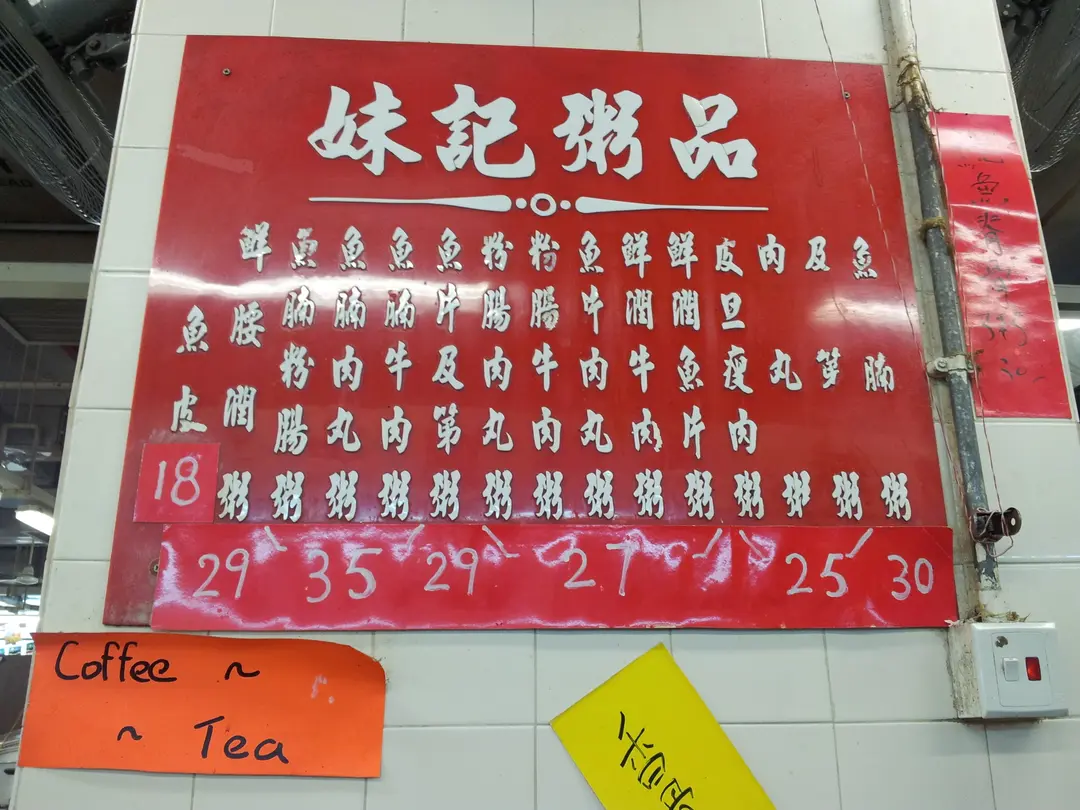 妹記粥品
魚腩粥
及第粥
肉丸粥
皮旦瘦肉粥
鮮潤魚片粥
鮮潤牛肉粥
魚片肉丸粥
粉腸牛肉粥
粉腸肉丸粥
魚片及第粥
魚腩牛肉粥
魚腩肉丸粥
魚腩粉腸粥
鮮腰潤粥
魚皮
18
29 35 29 27 25 30
Coffee ~
~ Tea